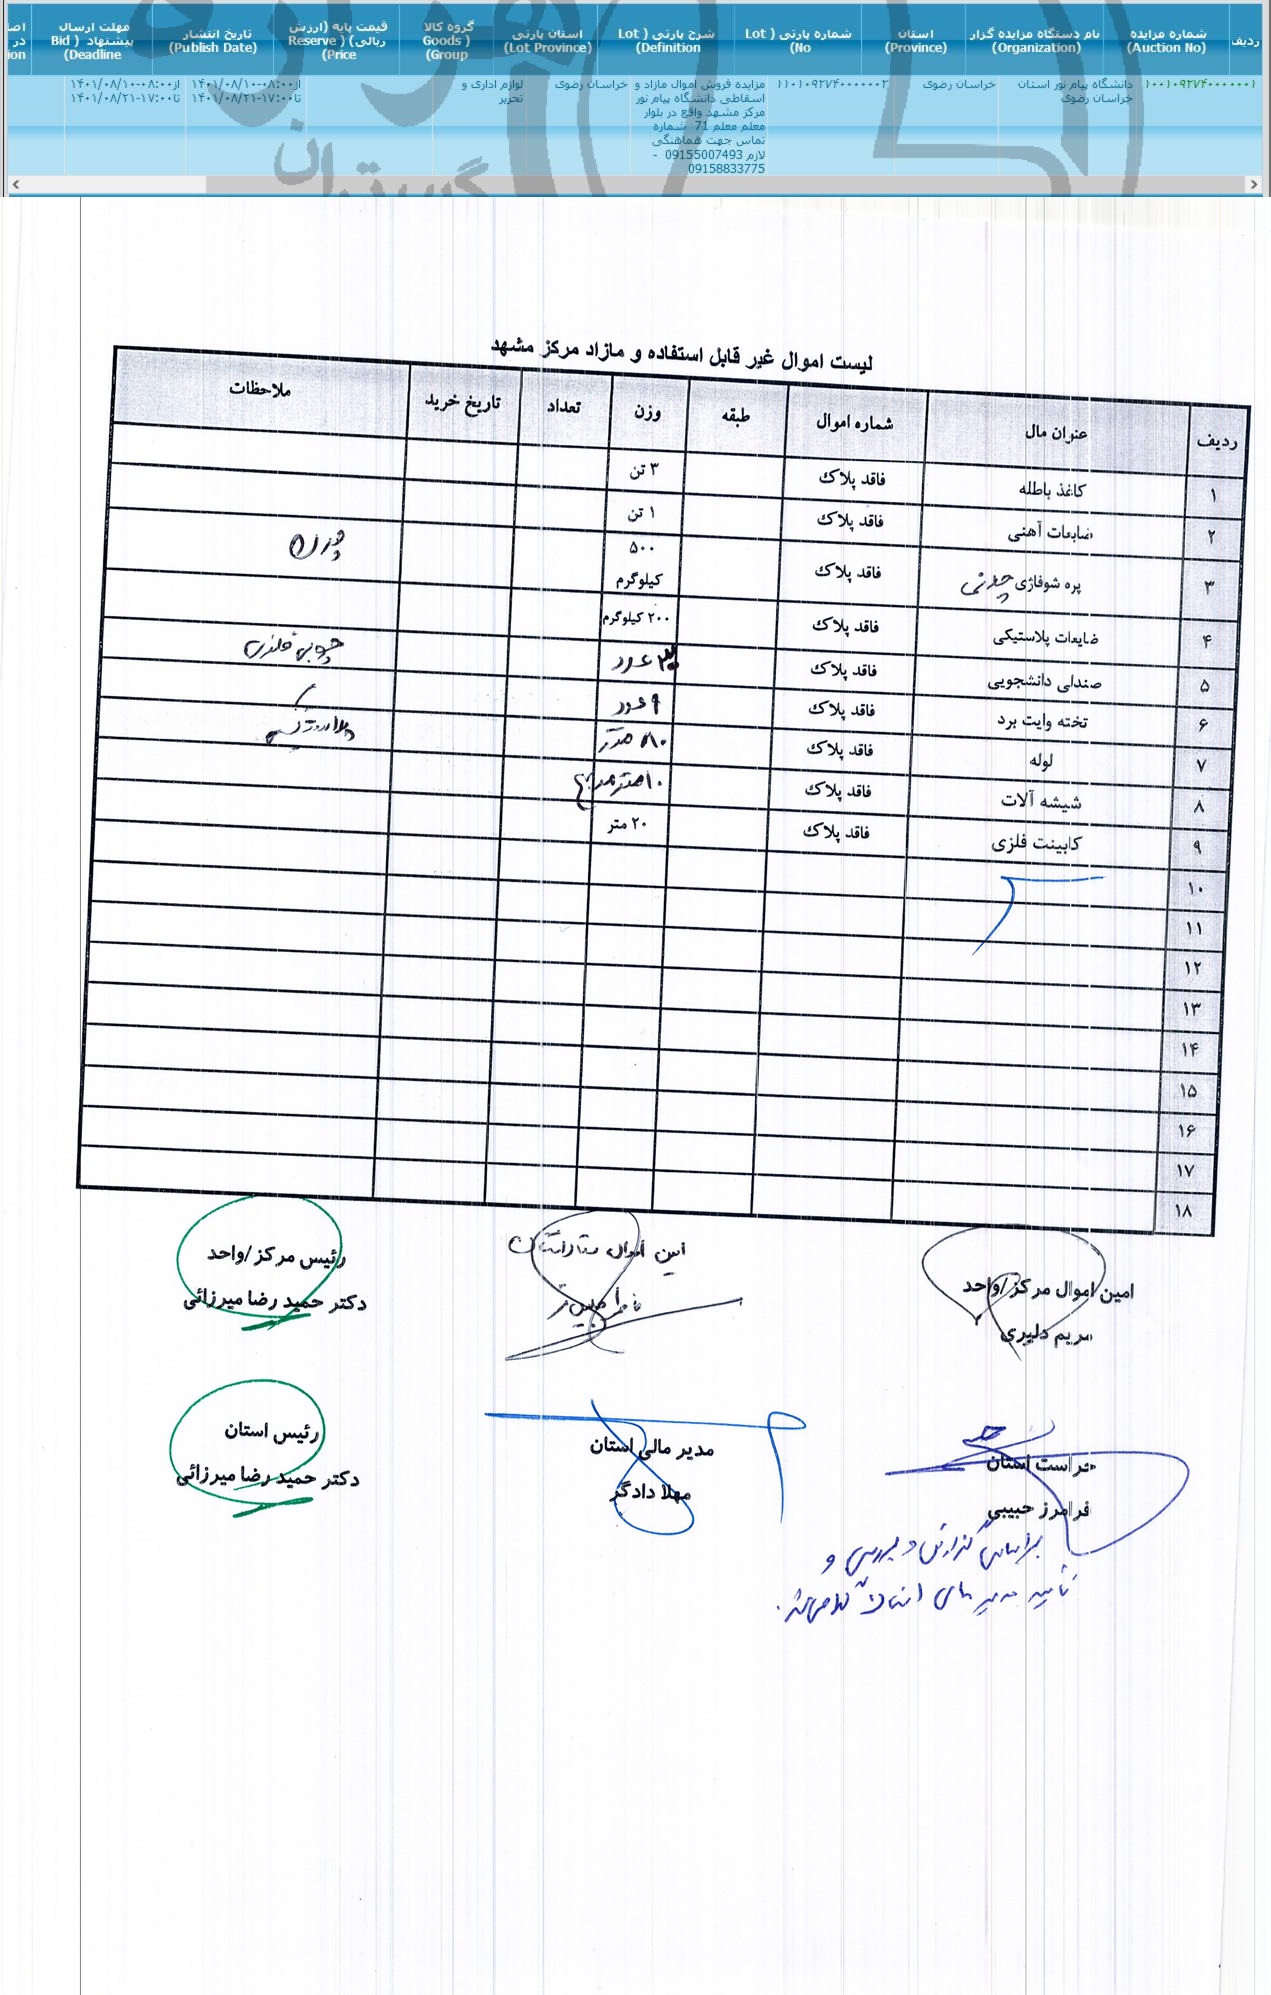 ردیف
شماره مزایده (Auction No)
نام دستگاه مزایده گزار (Organization)
استان (Province)
شماره پارتی ( Lot No)
شرح پارتی ( Lot Definition)
استان پارتی (Lot Province)
گروه کالا ( Goods Group)
قیمت پایه (ارزش ریالی) ( Reserve Price)
تاریخ انتشار (Publish Date)
مهلت ارسال پیشنهاد ( Bid Deadline)
۱۰۰۱۰۹۲۷۴۰۰۰۰۰۰۱
دانشگاه پیام نور استان خراسان رضوی
خراسان رضوی
۱۱۰۱۰۹۲۷۴۰۰۰۰۰۰۲
مزایده فروش اموال مازاد و
اسقاطی دانشگاه پیام نور
مرکز مشهد واقع در بلوار
معلم معلم 71 شماره
تماس جهت هماهنگی
لازم 09155007493 -
09158833775
خراسان رضوی
لوازم اداری و تحریر
از۰۸:۰۰-۱۴۰۱/۰۸/۱۰
تا۱۷:۰۰-۱۴۰۱/۰۸/۲۱
از۰۸:۰۰-۱۴۰۱/۰۸/۱۰
تا۱۷:۰۰-۱۴۰۱/۰۸/۲۱
لیست اموال غیر قابل استفاده و مازاد مرکز مشهد
ردیف عنوان مال شماره اموال طبقه وزن تعداد تاریخ خرید ملاحظات
۱ کاغذ باطله فاقد پلاک ۳ تن
۲ ضایعات آهنی فاقد پلاک ۱ تن
۳ پره شوفاژی چدنی فاقد پلاک ۵۰۰ کیلوگرم
۴ ضایعات پلاستیکی فاقد پلاک ۲۰۰ کیلوگرم
۵ صندلی دانشجویی فاقد پلاک عدد چوبی فلزی
۶ تخته وایت برد فاقد پلاک ۹ عدد
۷ لوله فاقد پلاک ۸۰ متر
۸ شیشه آلات فاقد پلاک ۱۰ متر مربع
۹ کابینت فلزی فاقد پلاک ۲۰ متر
۱۰
۱۱
۱۲
۱۳
۱۴
۱۵
۱۶
۱۷
۱۸
امین اموال مرکز/واحد
مریم دلیری
امین اموال ستاد استان
رئیس مرکز/واحد
دکتر حمید رضا میرزائی
حراست استان
فرامرز حبیبی
مدیر مالی استان
مهلا دادگر
رئیس استان
دکتر حمید رضا میرزائی
براساس گزارش و بررسی و
تایید مدیر مالی استان